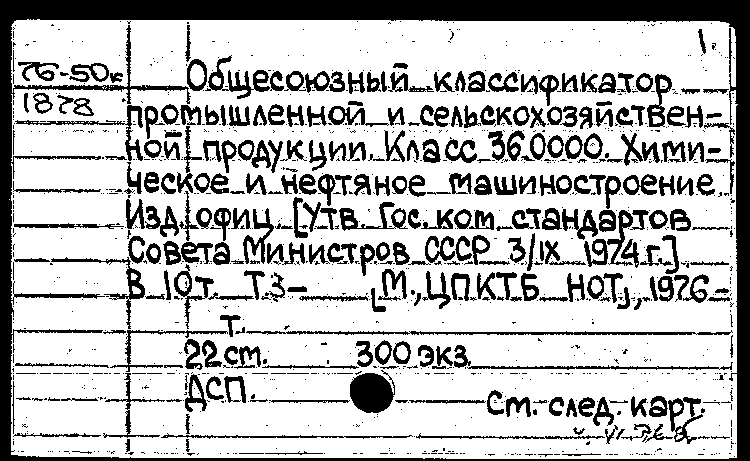 1.
76-50к Общесоюзный классификатор
1878 промышленной и сельскохозяйствен-
ной продукции. Класс 36.0000. Хими-
ческое и нефтяное машиностроение.
Изд. офиц. [Утв. Гос. ком. стандартов
Совета Министров СССР 3/IX 1974 г.]
В 10 т. Т.3- [М., ЦПКТБ НОТ], 1976-
т.
22 см. 300 экз.
ДСП.
См. след. карт.